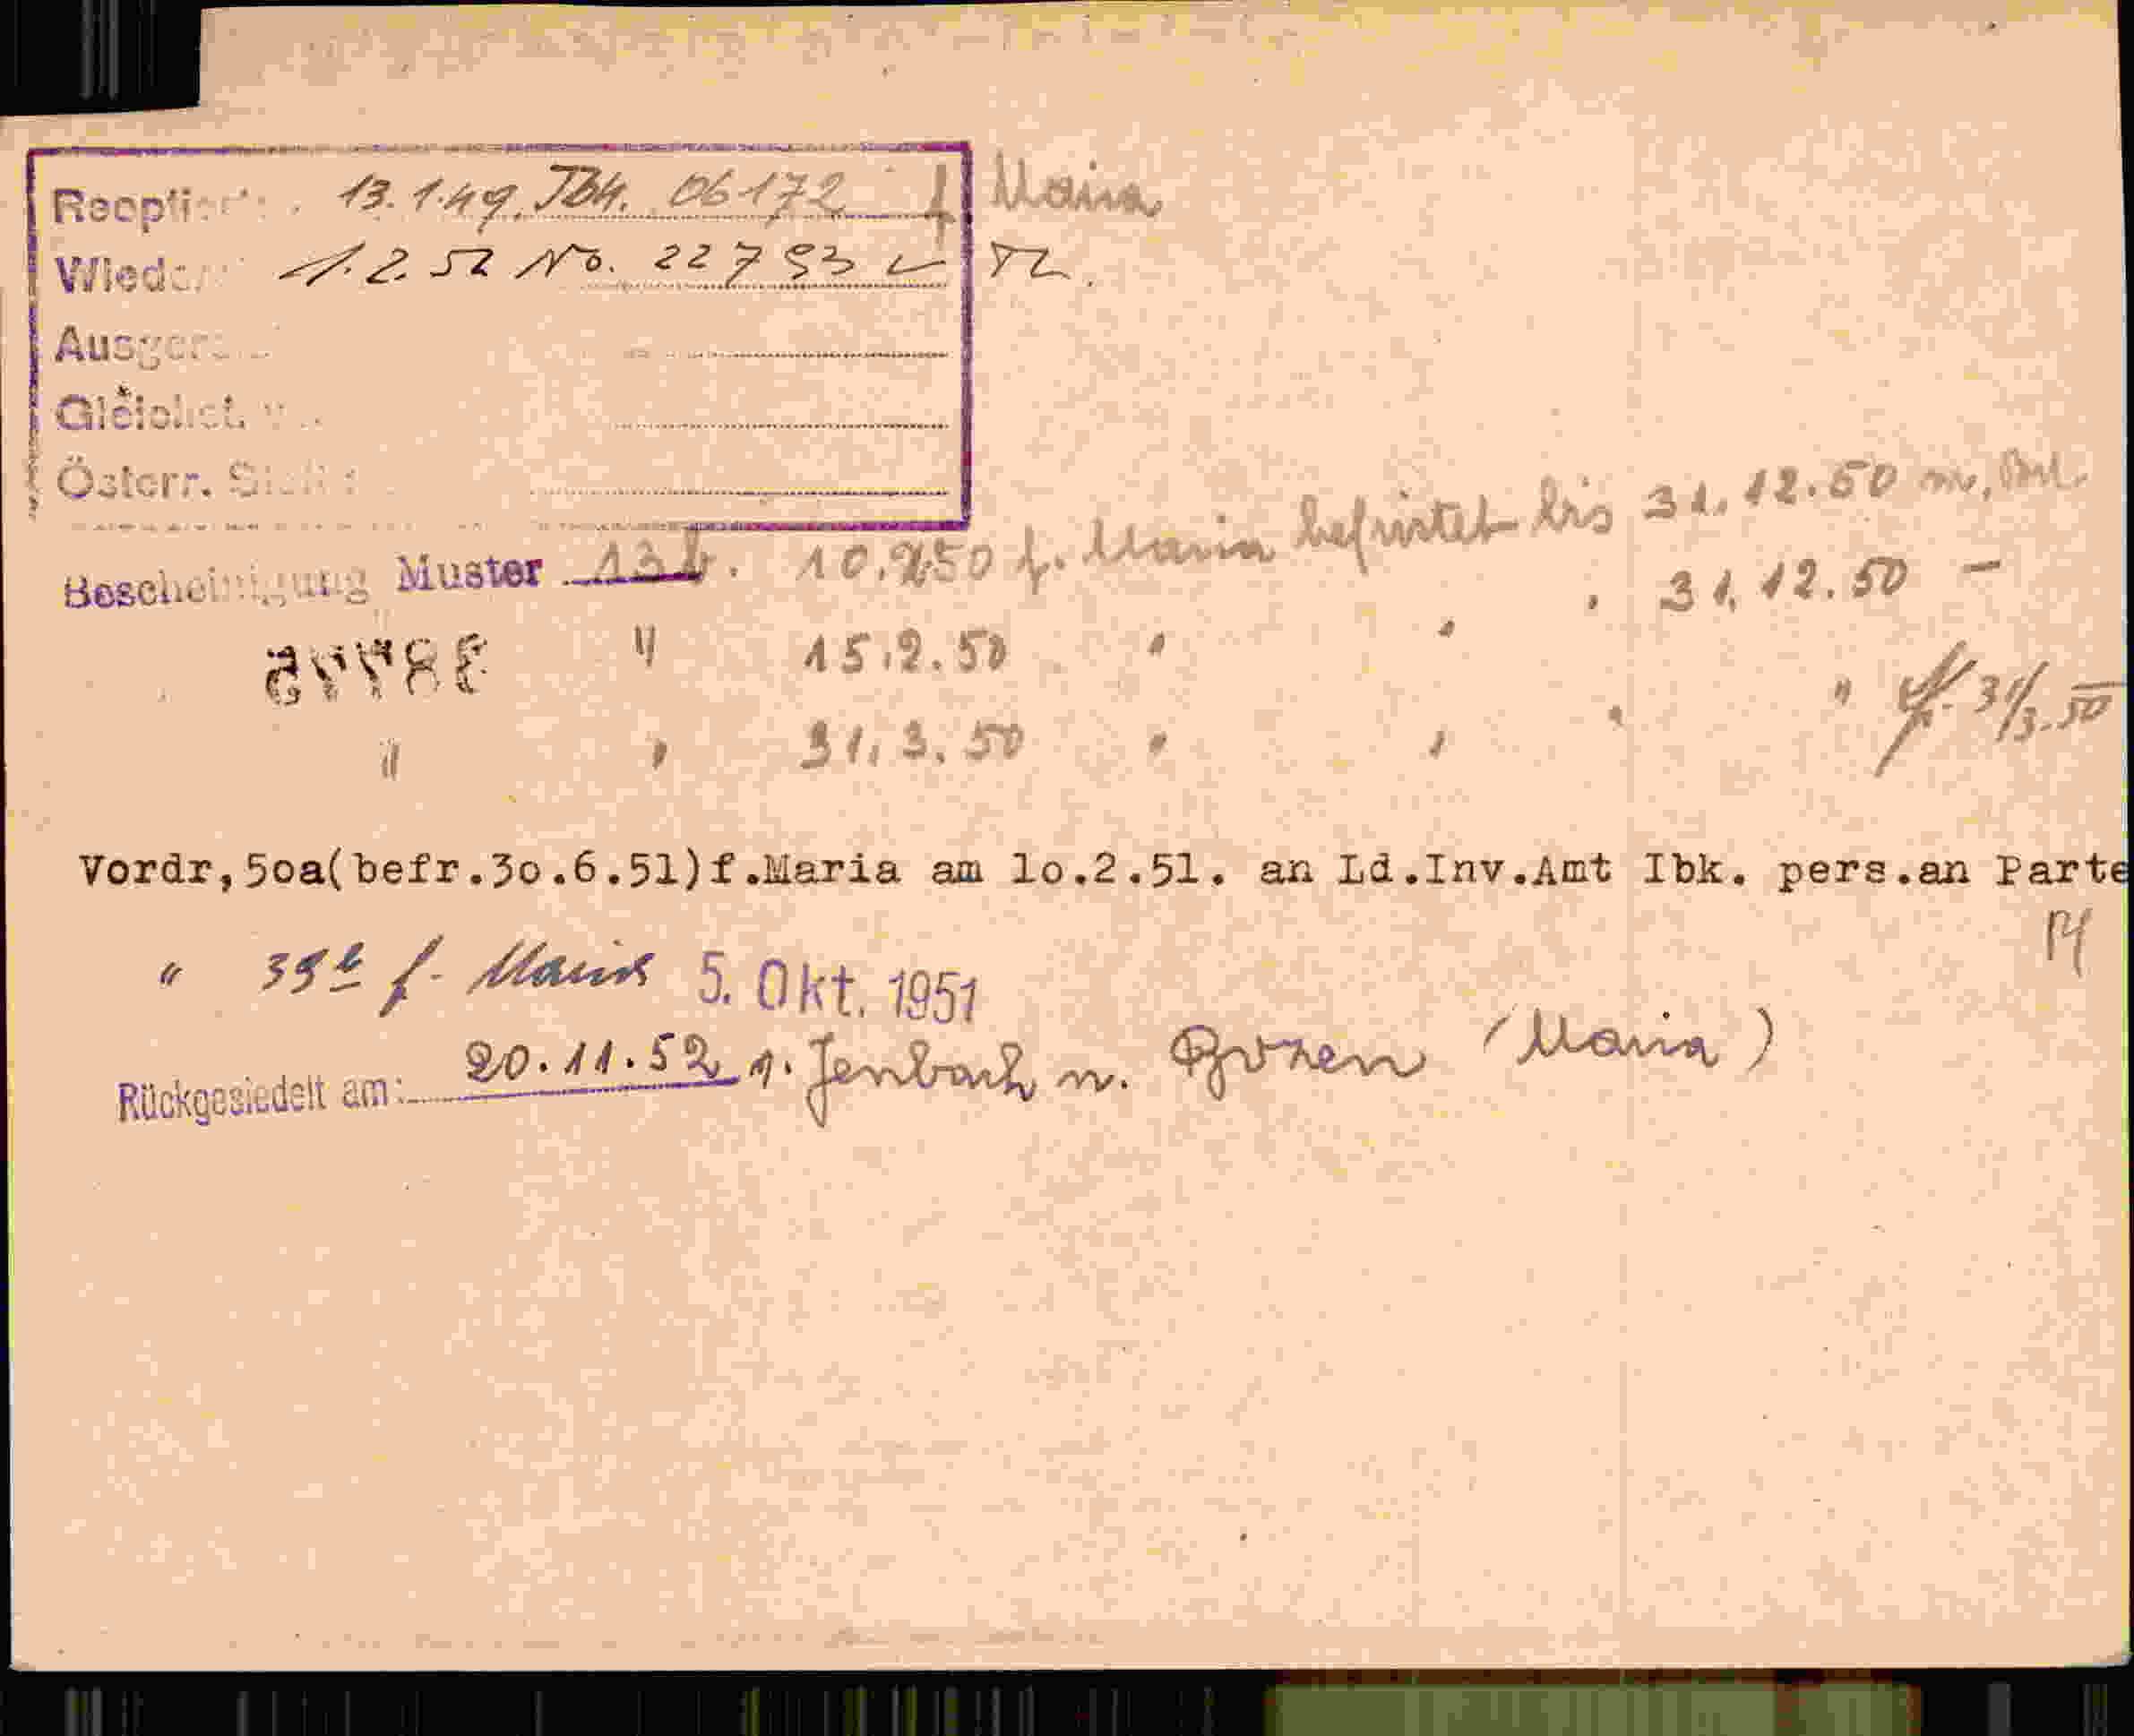 Reoptiert: 13.1.49. Ibk. 06172 f Maria
Wied 1.2.52 No. 22793
Ausger
Gleichst.
Österr.
Bescheinigung Muster 13b. 10.2.50 f. Maria befristet bis 31.12.50
" 15.2.50 " " " 31.12.50 —
" " 31.3.50 " " " " 31/3.50
Vordr,5oa(befr.3o.6.51)f.Maria am lo.2.51. an Ld.Inv.Amt Ibk. pers.an Parte
" 39b f. Maria 5. Okt. 1951
Rückgesiedelt am: 20.11.52 v. Jenbach n. Bozen (Maria)